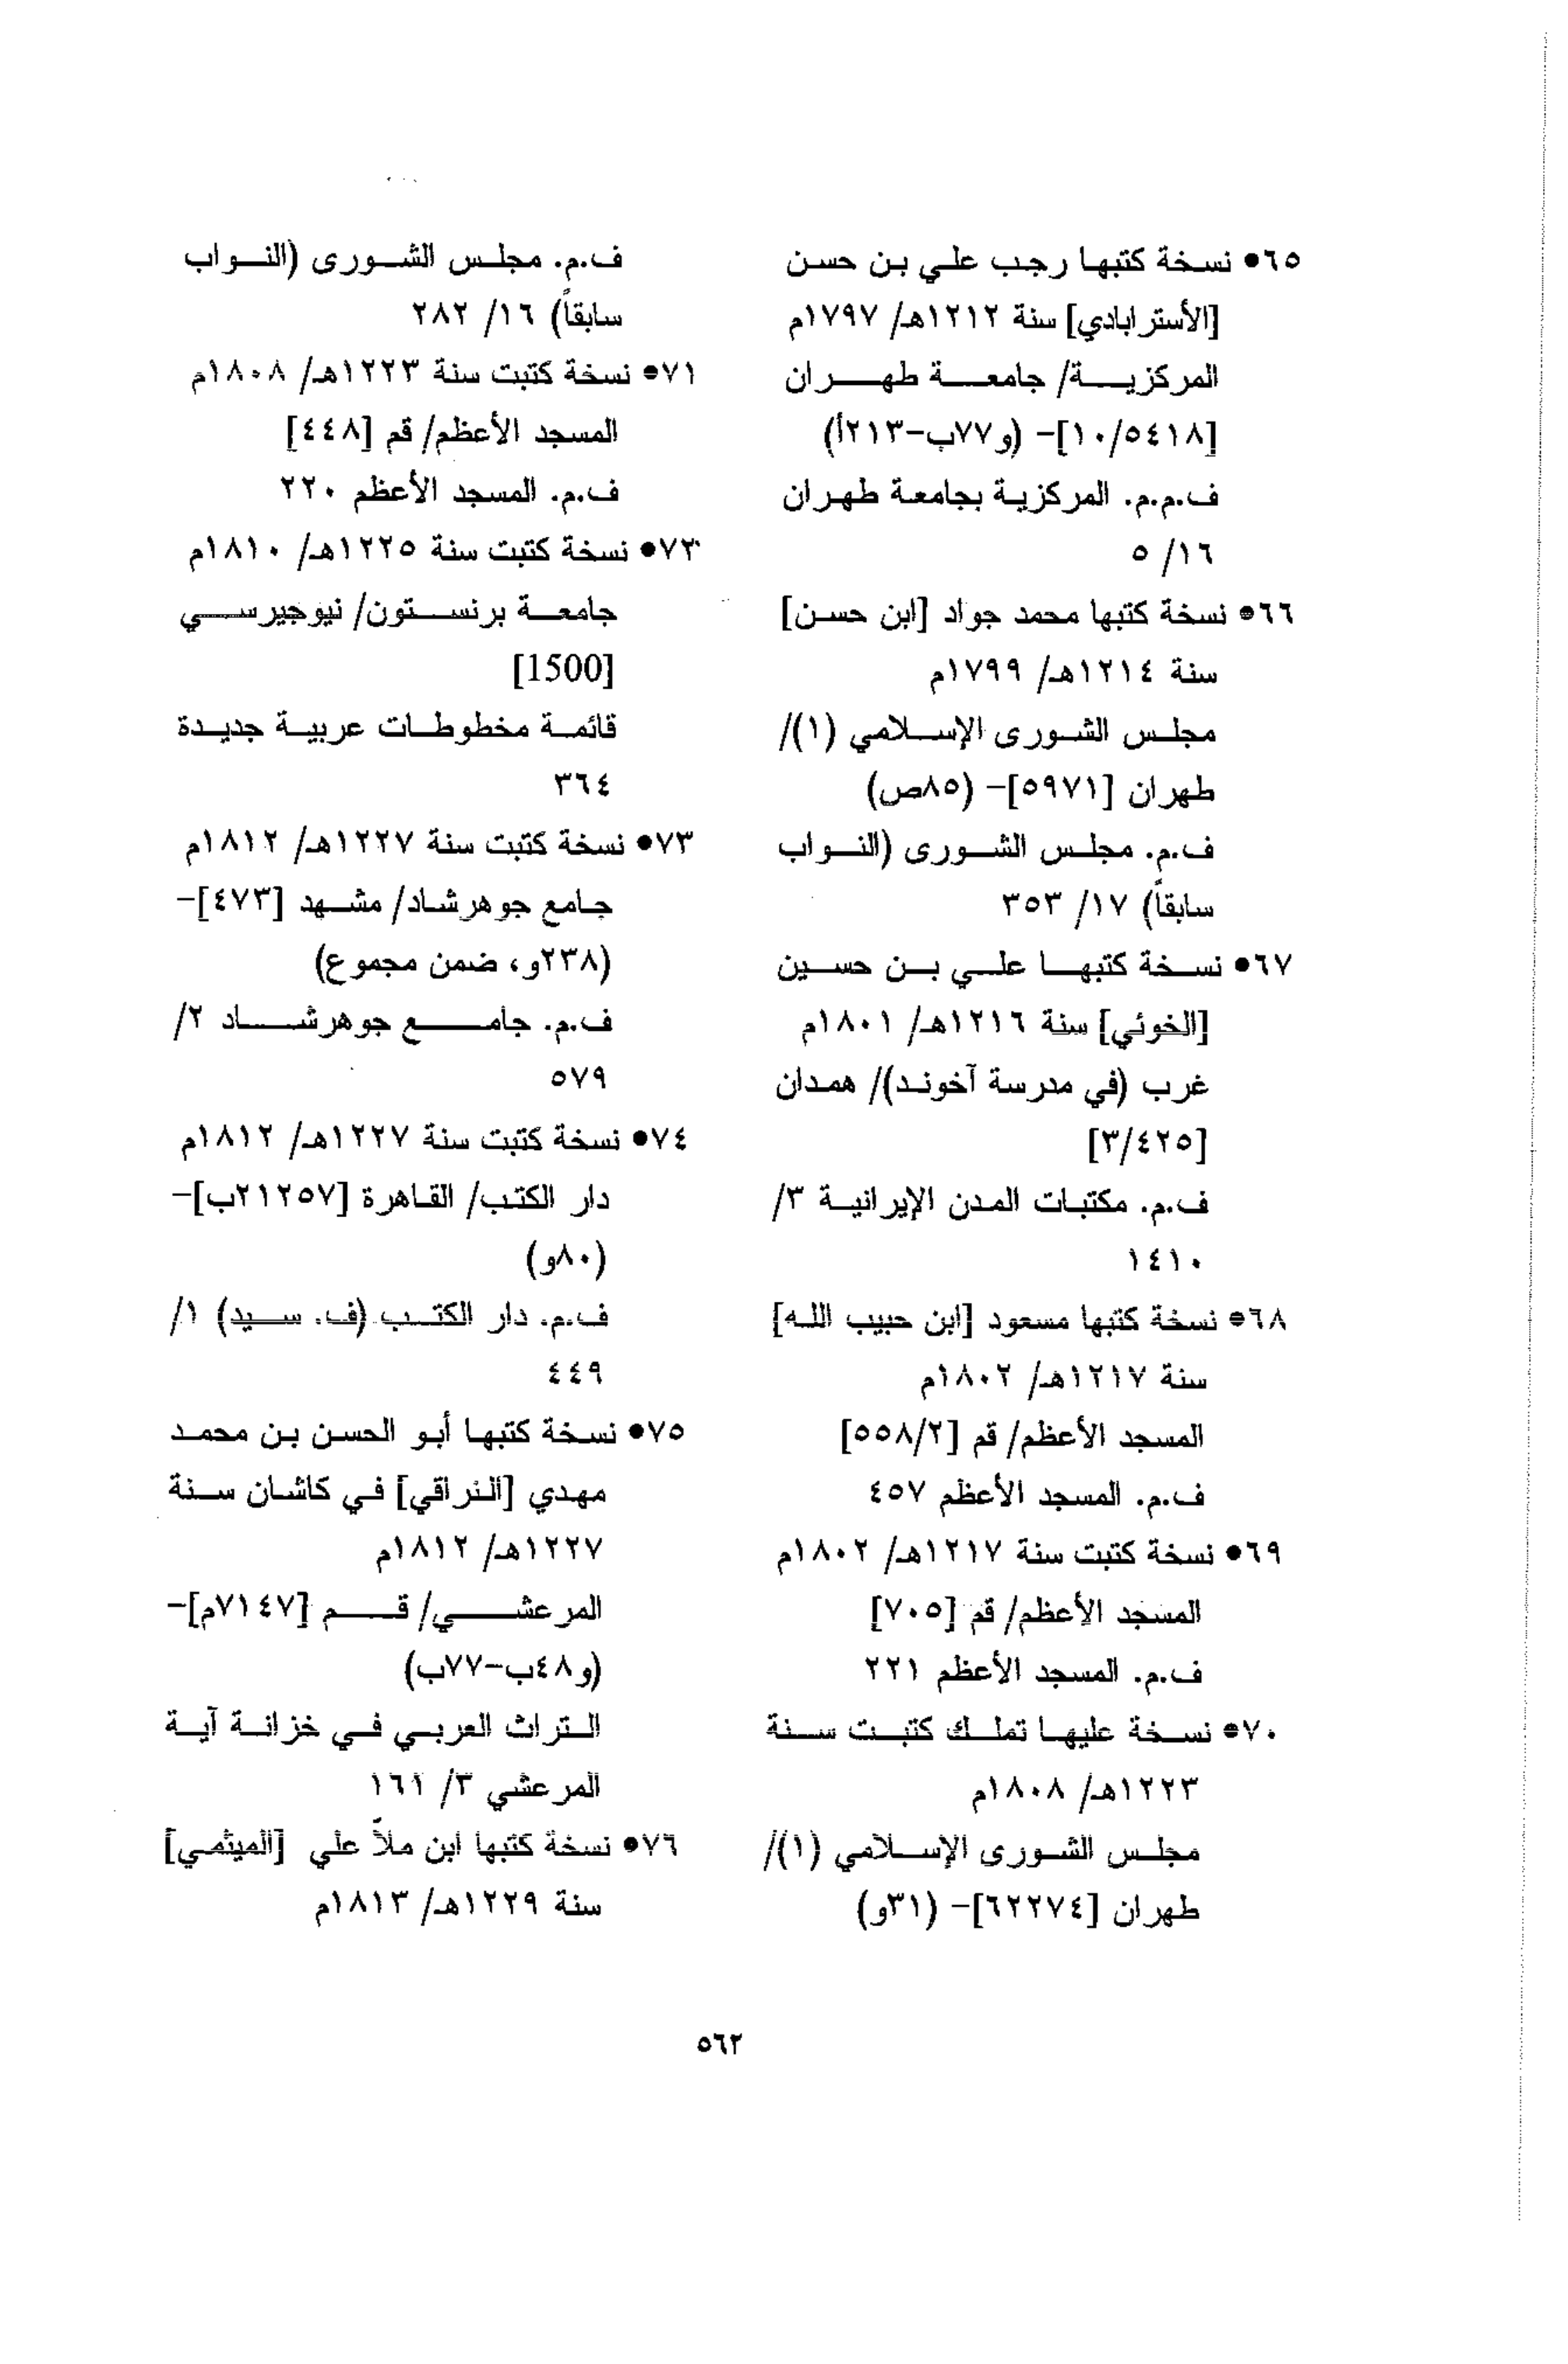 ٦٥• نسخة كتبها رجب علي بن حسن
[الأسترابادي] سنة ١٢١٢هـ/ ١٧٩٧م
المركزيــة/ جامعــة طهــران
[١٠/٥٤١٨]- (و٧٧ب-٢١٣أ)
ف.م.م. المركزية بجامعة طهران
١٦/ ٥
٦٦• نسخة كتبها محمد جواد [ابن حسن]
سنة ١٢١٤هـ/ ١٧٩٩م
مجلس الشورى الإسلامي (١)/
طهران [٥٩٧١]- (٨٥ص)
ف.م. مجلس الشورى (النواب
سابقاً) ١٧/ ٣٥٣
٦٧• نسخة كتبها علي بن حسين
[الخوئي] سنة ١٢١٦هـ/ ١٨٠١م
غرب (في مدرسة آخوند)/ همدان
[٣/٤٢٥]
ف.م. مكتبات المدن الإيرانية ٣/
١٤١٠
٦٨• نسخة كتبها مسعود [ابن حبيب الله]
سنة ١٢١٧هـ/ ١٨٠٢م
المسجد الأعظم/ قم [٥٥٨/٢]
ف.م. المسجد الأعظم ٤٥٧
٦٩• نسخة كتبت سنة ١٢١٧هـ/ ١٨٠٢م
المسجد الأعظم/ قم [٧٠٥]
ف.م. المسجد الأعظم ٢٢١
٧٠• نسخة عليها تملك كتبت سنة
١٢٢٣هـ/ ١٨٠٨م
مجلس الشورى الإسلامي (١)/
طهران [٦٢٢٧٤]- (٣١و)
ف.م. مجلس الشورى (النواب
سابقاً) ١٦/ ٢٨٢
٧١• نسخة كتبت سنة ١٢٢٣هـ/ ١٨٠٨م
المسجد الأعظم/ قم [٤٤٨]
ف.م. المسجد الأعظم ٢٢٠
٧٢• نسخة كتبت سنة ١٢٢٥هـ/ ١٨١٠م
جامعة برنستون/ نيوجيرسي
[1500]
قائمة مخطوطات عربية جديدة
٣٦٤
٧٣• نسخة كتبت سنة ١٢٢٧هـ/ ١٨١٢م
جامع جوهرشاد/ مشهد [٤٧٣]-
(٢٣٨و، ضمن مجموع)
ف.م. جامع جوهرشاد ٢/
٥٧٩
٧٤• نسخة كتبت سنة ١٢٢٧هـ/ ١٨١٢م
دار الكتب/ القاهرة [٢١٢٥٧ب]-
(٨٠و)
ف.م. دار الكتب (ف. سيد) ١/
٤٤٩
٧٥• نسخة كتبها أبو الحسن بن محمد
مهدي [النراقي] في كاشان سنة
١٢٢٧هـ/ ١٨١٢م
المرعشي/ قم [٧١٤٧م]-
(و٤٨ب-٧٧ب)
التراث العربي في خزانة آية
المرعشي ٣/ ١٦١
٧٦• نسخة كتبها ابن ملاّ علي [الميثمي]
سنة ١٢٢٩هـ/ ١٨١٣م
٥٦٢